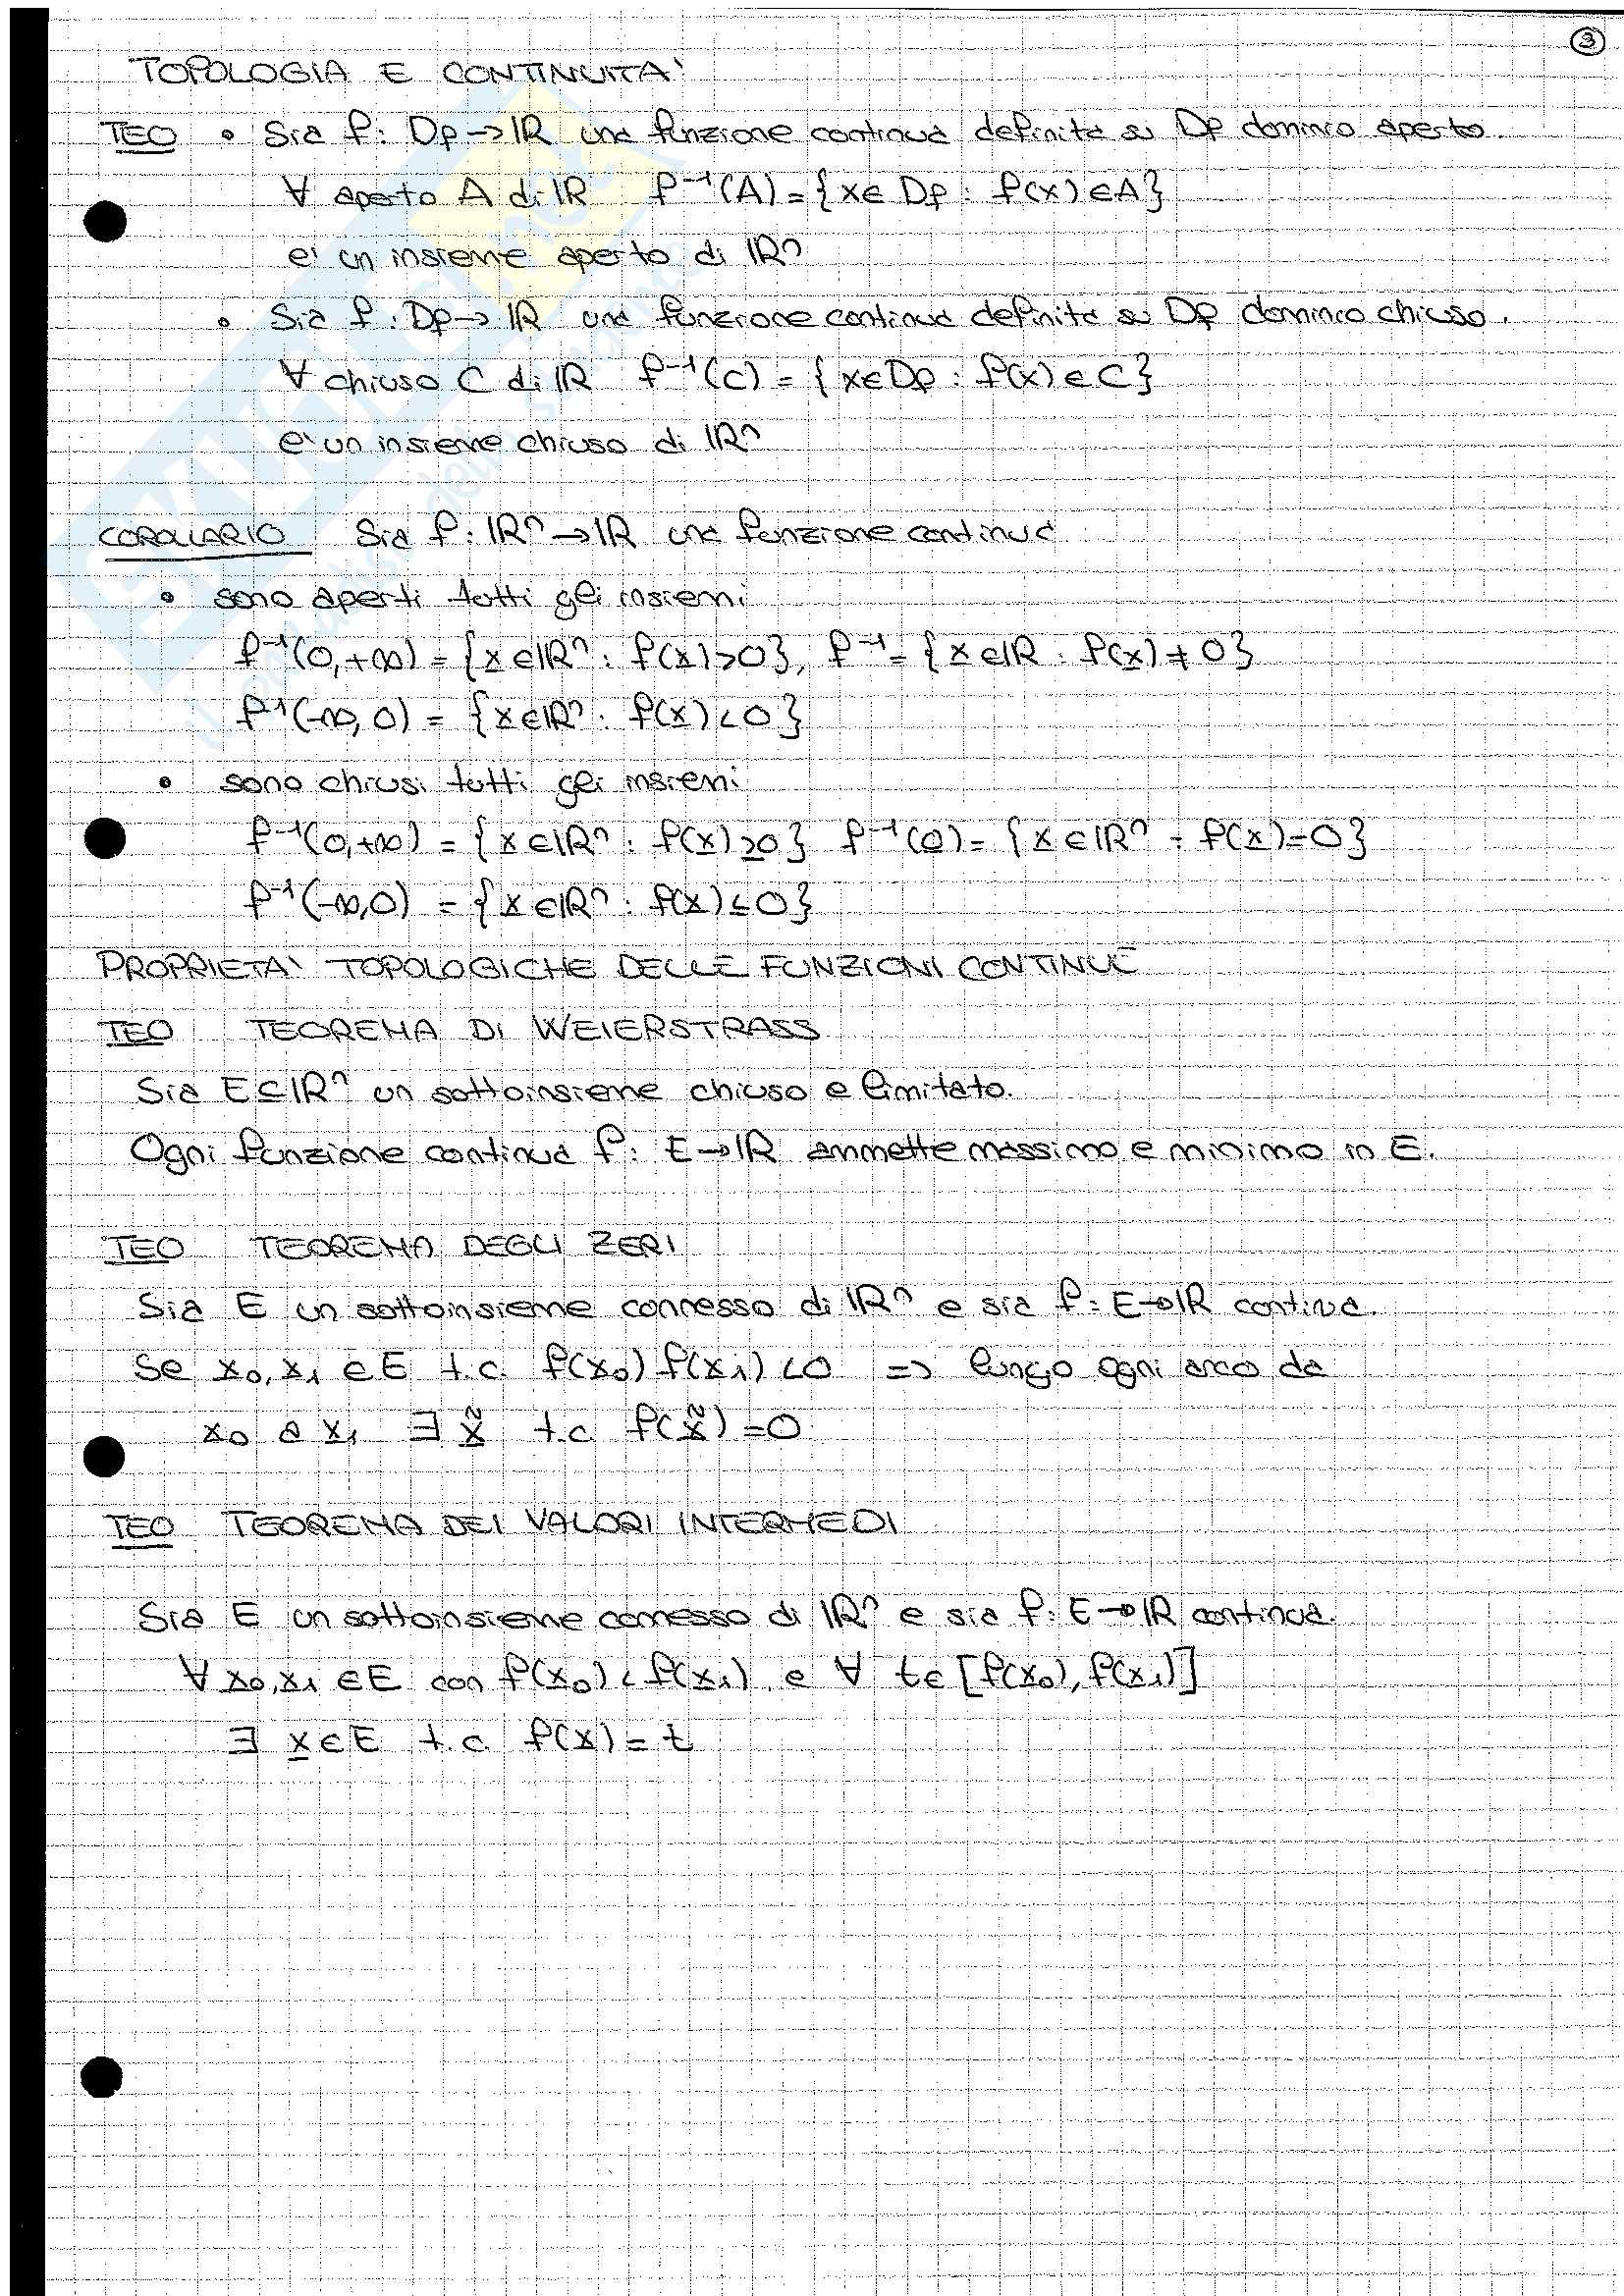 3
TOPOLOGIA E CONTINUITA'
TEO • Sia f: Df → IR una funzione continua definita su Df dominio aperto.
∀ aperto A di IR f⁻¹(A) = {x ∈ Df : f(x) ∈ A}
e' un insieme aperto di IRⁿ
• Sia f: Df → IR una funzione continua definita su Df dominio chiuso.
∀ chiuso C di IR f⁻¹(C) = {x ∈ Df : f(x) ∈ C}
e' un insieme chiuso di IRⁿ
COROLLARIO Sia f: IRⁿ → IR una funzione continua
• sono aperti tutti gli insiemi
f⁻¹(0,+∞) = {x ∈ IRⁿ : f(x) > 0}, f⁻¹ = {x ∈ IR : f(x) ≠ 0}
f⁻¹(-∞,0) = {x ∈ IRⁿ : f(x) < 0}
• sono chiusi tutti gli insiemi
f⁻¹(0,+∞) = {x ∈ IRⁿ : f(x) ≥ 0} f⁻¹(0) = {x ∈ IRⁿ : f(x) = 0}
f⁻¹(-∞,0) = {x ∈ IRⁿ : f(x) ≤ 0}
PROPRIETA' TOPOLOGICHE DELLE FUNZIONI CONTINUE
TEO TEOREMA DI WEIERSTRASS
Sia E ⊆ IRⁿ un sottoinsieme chiuso e limitato.
Ogni funzione continua f: E → IR ammette massimo e minimo in E.
TEO TEOREMA DEGLI ZERI
Sia E un sottoinsieme connesso di IRⁿ e sia f: E → IR continua.
Se x₀, x₁ ∈ E t.c. f(x₀) f(x₁) < 0 => lungo ogni arco da
x₀ a x₁ ∃ x̃ t.c. f(x̃) = 0
TEO TEOREMA DEI VALORI INTERMEDI
Sia E un sottoinsieme connesso di IRⁿ e sia f: E → IR continua.
∀ x₀, x₁ ∈ E con f(x₀) < f(x₁) e ∀ t ∈ [f(x₀), f(x₁)]
∃ x ∈ E t.c. f(x) = t